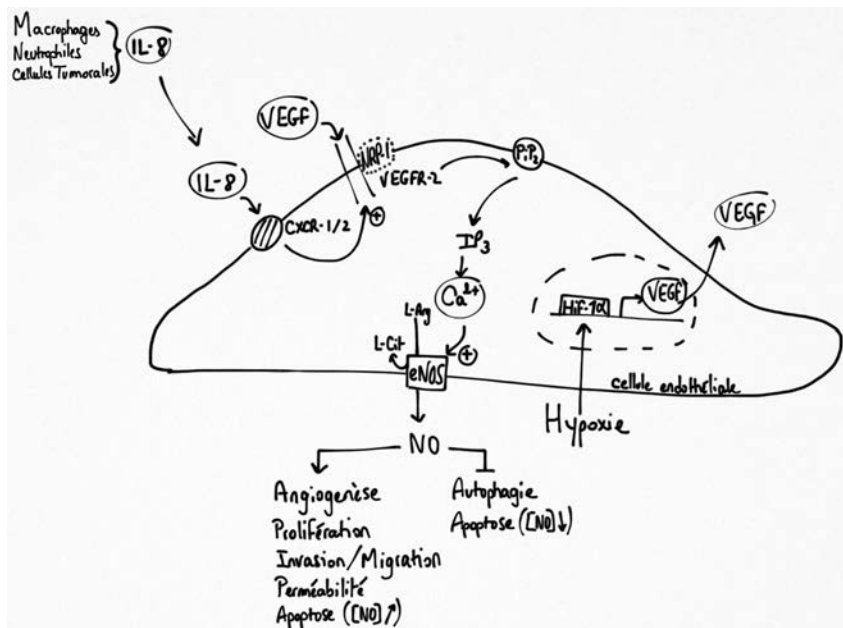 Macrophages
Neutrophiles
Cellules Tumorales
IL-8
VEGF
NRP-1
VEGFR-2
PiP2
IL-8
CXCR-1/2
+
IP3
Ca2+
VEGF
HiF-1α
VEGF
L-Arg
L-Cit
+
eNOS
cellule endothéliale
Hypoxie
NO
Angiogenèse
Prolifération
Invasion/Migration
Perméabilité
Apoptose ([NO]↗)
Autophagie
Apoptose ([NO]↓)